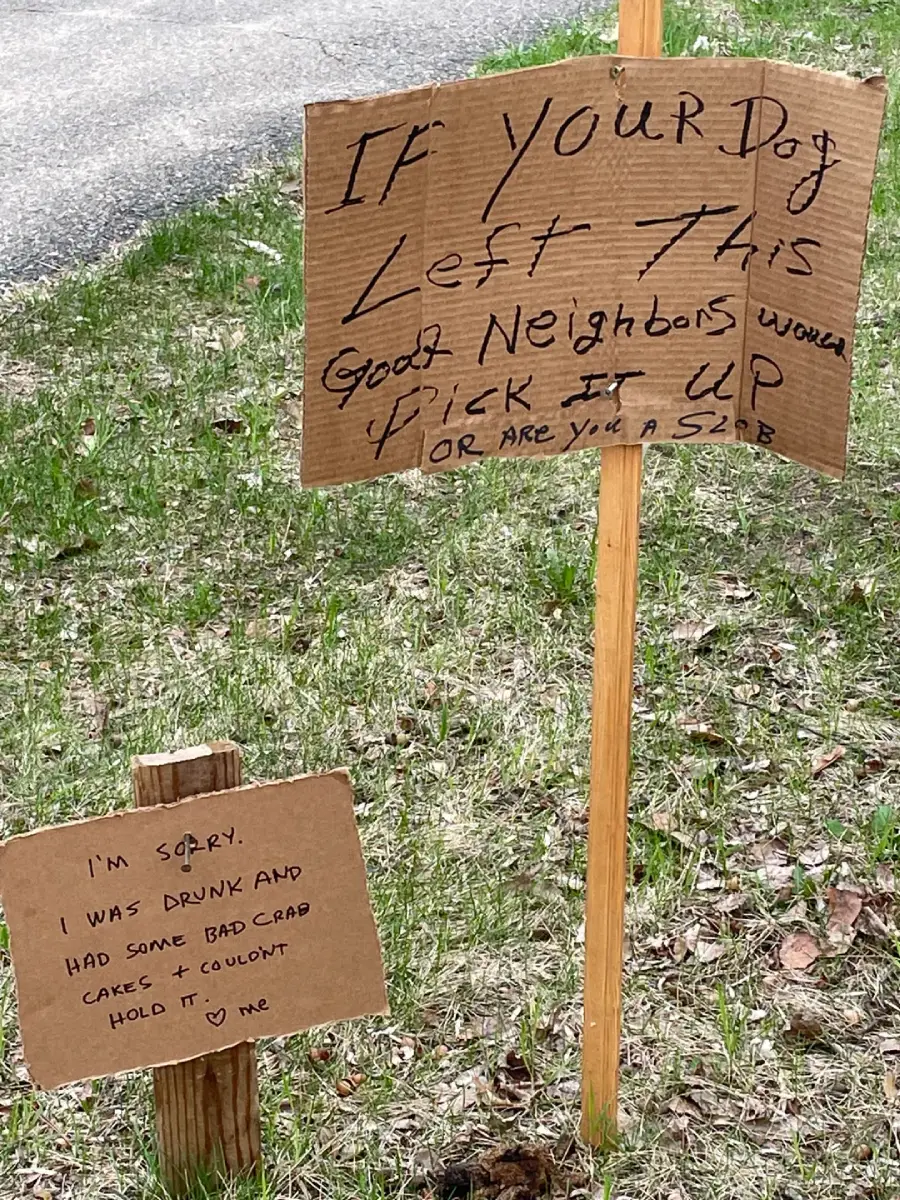 IF YOUR Dog
Left This
Good Neighbors would
Pick IT UP
OR ARE YOU A SLOB
I'M SORRY.
I WAS DRUNK AND
HAD SOME BAD CRAB
CAKES + COULDN'T
HOLD IT.
♡ me